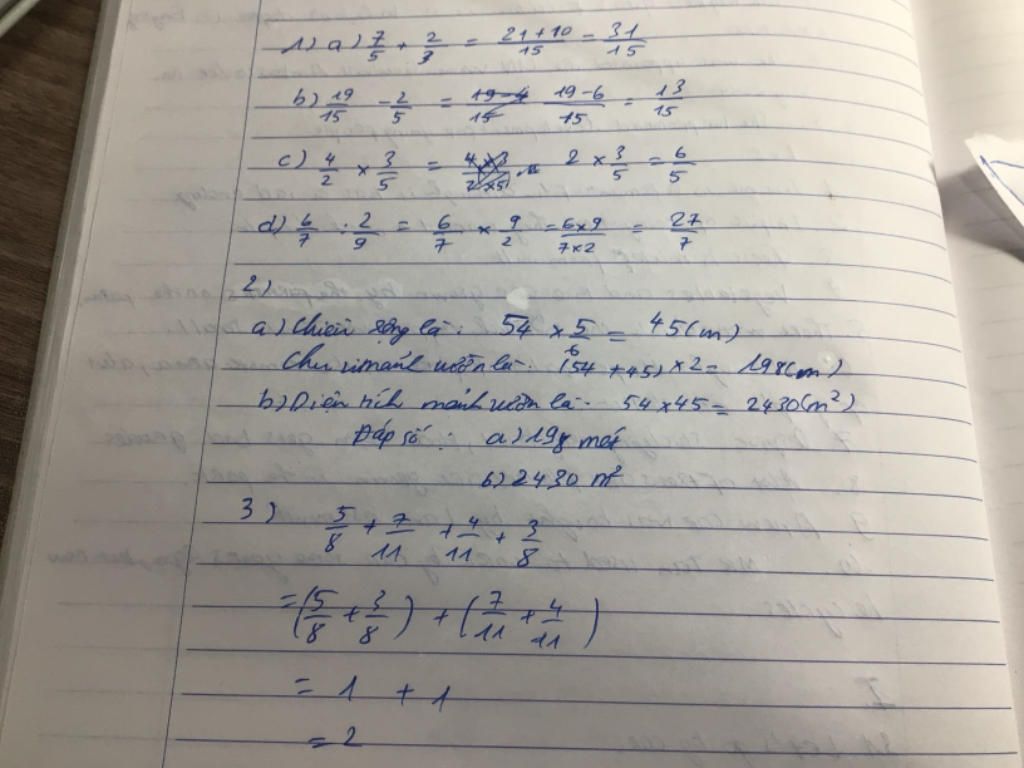 1) a) 7/5 + 2/3 = 21+10/15 = 31/15
b) 19/15 - 2/5 = 19-4/15 19-6/15 = 13/15
c) 4/2 × 3/5 = 4×3/2×5 = 2 × 3/5 = 6/5
d) 6/7 : 2/9 = 6/7 × 9/2 = 6×9/7×2 = 27/7
2)
a) Chiều rộng là: 54 × 5/6 = 45(m)
Chu vi mảnh vườn là: (54 + 45) × 2 = 198(m)
b) Diện tích mảnh vườn là: 54 × 45 = 2430(m²)
Đáp số: a) 198 mét
b) 2430 m²
3) 5/8 + 7/11 + 4/11 + 3/8
= (5/8 + 3/8) + (7/11 + 4/11)
= 1 + 1
= 2